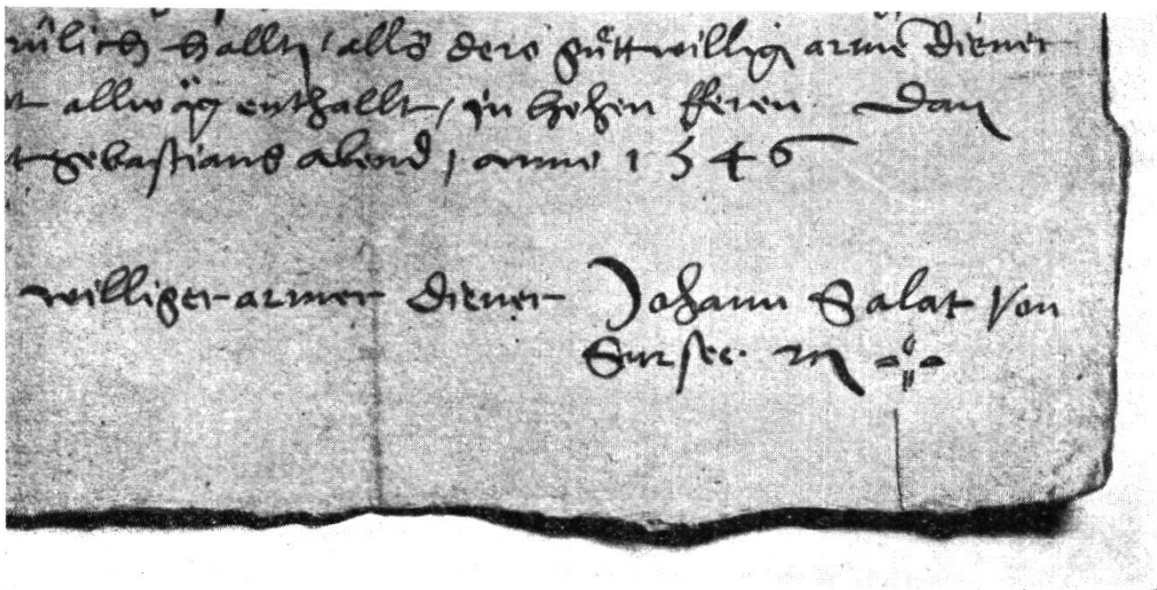 hallt / alls dero guͦttwillig arme diener
allwäg enthallt / in hohen eeren Dat
sebastians abend / anno 1546
williger armer diener Johann Salat von
Sursee.